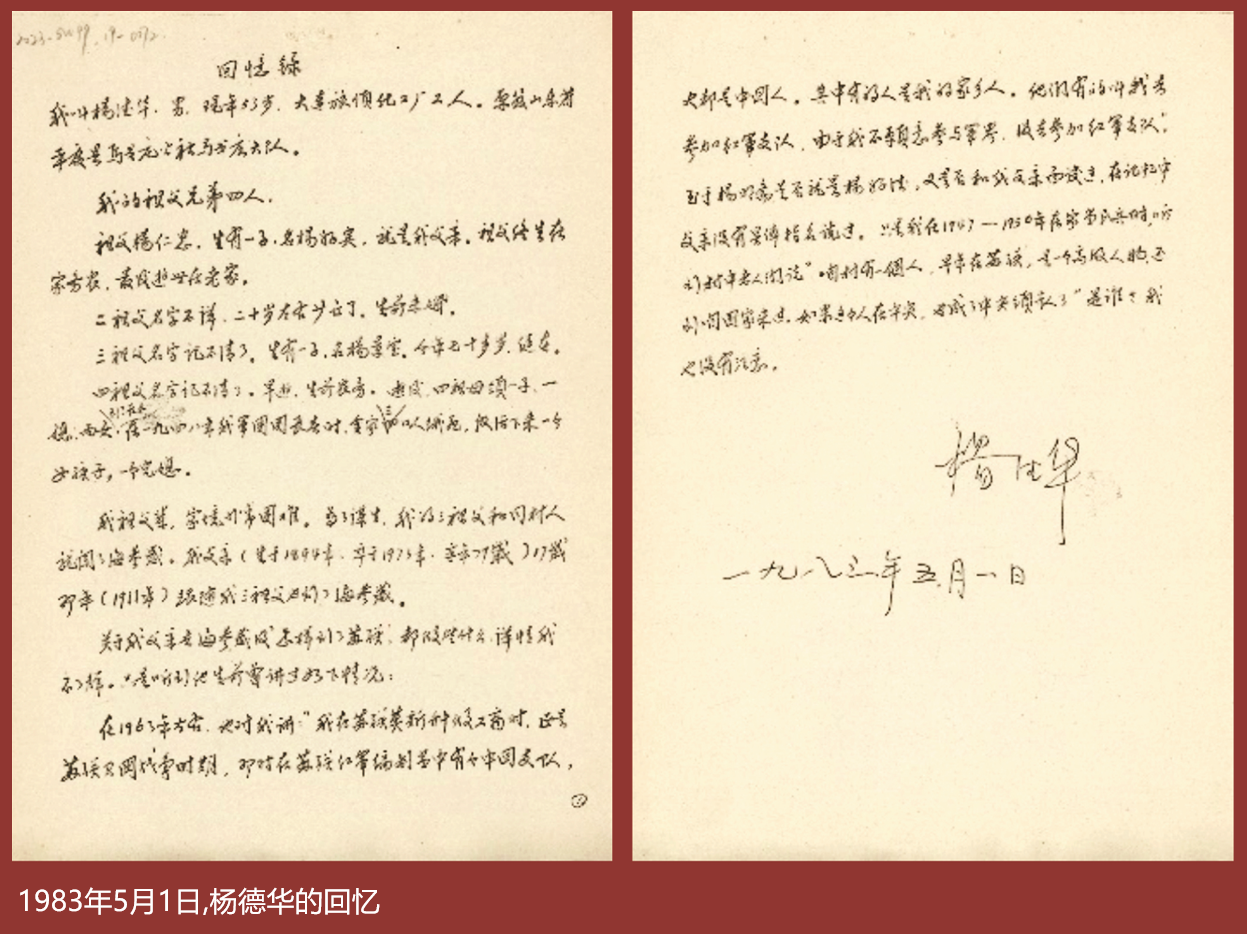 回忆录
我叫楊德华，男，现年53岁，大连旅顺化工厂工人。原籍山东省
平度县马戈庄公社马戈庄大队。
我的祖父兄弟四人。
祖父楊仁忠，生有一子，名楊好宾，就是我父亲。祖父终生在
家务农，最后逝世在老家。
二祖父名字不详，二十岁左右少亡了，生前未婚。
三祖父名字记不清了。生有一子，名楊 宝，今年七十多岁，健在。
四祖父名字记不清了。早逝，生前农务。 四祖母领一子、一
媳、两女，在一九四八年我军围困长春时，全家 口人饿死，仅活下来一个
女孩子，一个儿媳。
我祖父辈，家境非常困难。为了谋生，我的三祖父和同村人
就闯了海参崴。我父亲（生于1894年，卒于1973年，享年79歲）17歲
那年（1911年）跟随我三祖父也到了海参崴。
关于我父亲去海参崴后怎样到了苏联，都做些什么，详情我
不了解。只是听到他生前曾讲过如下情况：
在1963年左右，他对我讲：“我在苏联 工商时，正是
苏联 国战争时期，那时在苏联红軍编制当中有个中国支队，
①
大部是中国人。其中有的人是我的家乡人。他们有的叫我去
参加红軍支队，由于我不愿意参与軍界，没去参加红軍支队”。
至于楊明斋是否就是楊好德，又是否和我父亲两 过，在记忆中
父亲没有具体指名说过。只是我在1947—1950年在家当民兵时，听
到村中老人闲说“咱村有一個人，早年在苏联，是一个高级人物，还
到咱国家来过，如果这个人在中央，也成了中央领袖了”是谁？我
也没有注意。
楊德华
一九八三年五月一日
1983年5月1日,杨德华的回忆